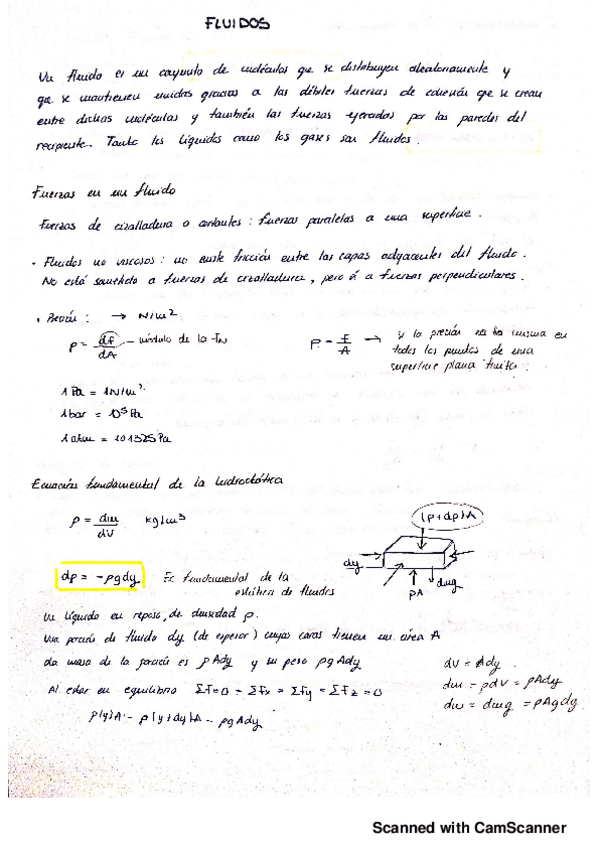 FLUIDOS
Un fluido es un conjunto de moléculas que se distribuyen aleatoriamente y
que se mantienen unidas gracias a las débiles fuerzas de cohesión que se crean
entre dichas moléculas y también las fuerzas ejercidas por las paredes del
recipiente. Tanto los líquidos como los gases son fluidos.
Fuerzas en un fluido
Fuerzas de cizalladura o cortantes : fuerzas paralelas a una superficie.
· Fluidos no viscosos : no existe fricción entre las capas adyacentes del fluido.
No está sometido a fuerzas de cizalladura, pero sí a fuerzas perpendiculares.
· Presión : → N/m²
p = dF/dA – módulo de la FN
P = F/A → si la presión es la misma en
todos los puntos de una
superficie plana finita.
1 Pa = 1 N/m²
1 bar = 10⁵ Pa
1 atm = 101325 Pa
Ecuación fundamental de la hidrostática
ρ = dm/dV kg/m³
(p+dp)A
dy
pA
dmg
dp = -ρgdy Ec fundamental de la
estática de fluidos
Un líquido en reposo, de densidad ρ.
Una porción de fluido dy (de espesor) cuyas caras tienen un área A
La masa de la porción es ρAdy y su peso ρgAdy
dV = Ady
dm = ρdV = ρAdy
dw = dmg = ρAgdy
Al estar en equilibrio ΣF=0 – ΣFx = ΣFy = ΣFz = 0
p(y)A - p(y+dy)A - ρgAdy
Scanned with CamScanner